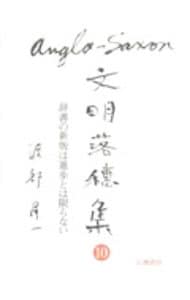 Anglo-Saxon
文明落穂集
辞書の新版は進歩とは限らない
渡部昇一
10